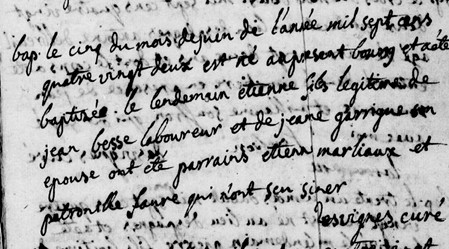 bap. le cinq du mois de juin de l'année mil sept cens
quatre vingt deux est né au present bourg et a été
baptisée le lendemain etienne fils legitime de
jean besse laboureur et de jeane garrigue son
epouse ont été parrains etienn martiaux et
petronille faure qui n'ont seu siner
lesvignes curé